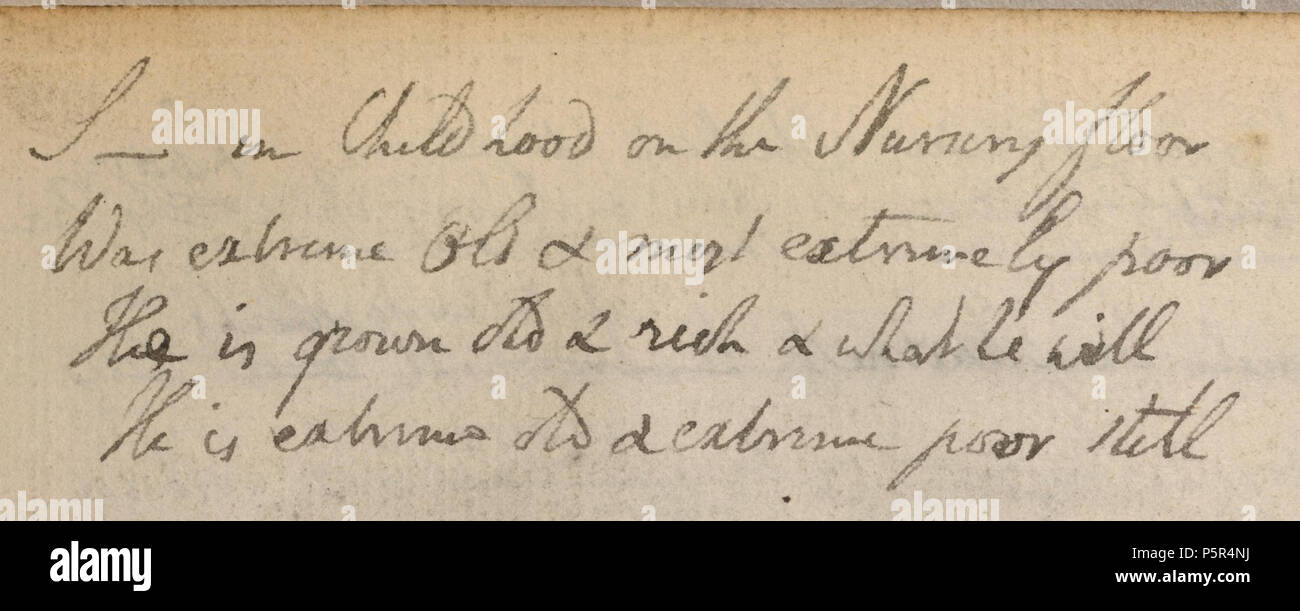 S— in Childhood on the Nursery floor
Was extreme Old & most extremely poor
He is grown old & rich & what he will
He is extreme old & extreme poor still
alamy
Image ID: P5R4NJ
www.alamy.com